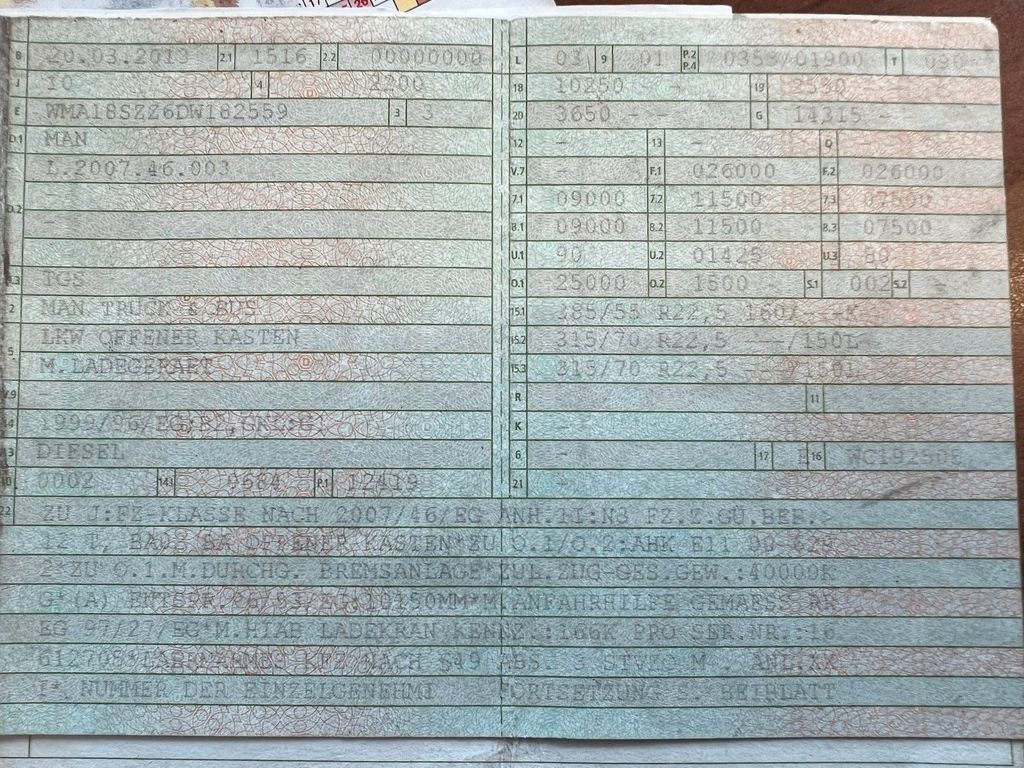 B 20.03.2013 2.1 1516 2.2 00000000
J 10 4 2200
E WMA18SZZ6DW182559 3 3
D.1 MAN
L.2007.46.003
D.2 -
-
-
.3 TGS
2 MAN TRUCK & BUS
LKW OFFENER KASTEN
5 M.LADEGERAET
V.9 -
14 1999/96/EG:B2,GKL:G1
.3 DIESEL
10 0002 14.1 0684 P.1 12419
L 03 9 01 P.2 P.4 0353/01900 T
18 10250 19 2550
20 3650 - - G 14315 -
12 - 13 - Q -
V.7 - F.1 026000 F.2 026000
7.1 09000 7.2 11500 7.3 07500
8.1 09000 8.2 11500 8.3 07500
U.1 90 U.2 01425 U.3 80
O.1 25000 O.2 1500 S.1 002 S.2 -
15.1 385/55 R22,5 160/---K
15.2 315/70 R22,5 ---/150L
15.3 315/70 R22,5 ---/150L
R 11
K -
6 - 17 E 16
21 -
22 ZU J:FZ-KLASSE NACH 2007/46/EG ANH.II:N3 FZ.Z.GÜ.BEF.>
12 T, BA OFFENER KASTEN*ZU O.1/O.2:AHK E11 00-629
2*ZU O.1.M.DURCHG. BREMSANLAGE*ZUL.ZUG-GES.GEW.:40000K
G*(A) ENTSPR.96/53/EG:10150MM*M.ANFAHRHILFE GEMAESS RR
EG 97/27/EG*M.HIAB LADEKRAN KENNZ.:166K PRO SER.NR.:16
KFZ NACH §49 ABS. 3 STVZO M. ANL.XX
I*, NUMMER DER EINZELGENEHMI FORTSETZUNG S. BEIBLATT